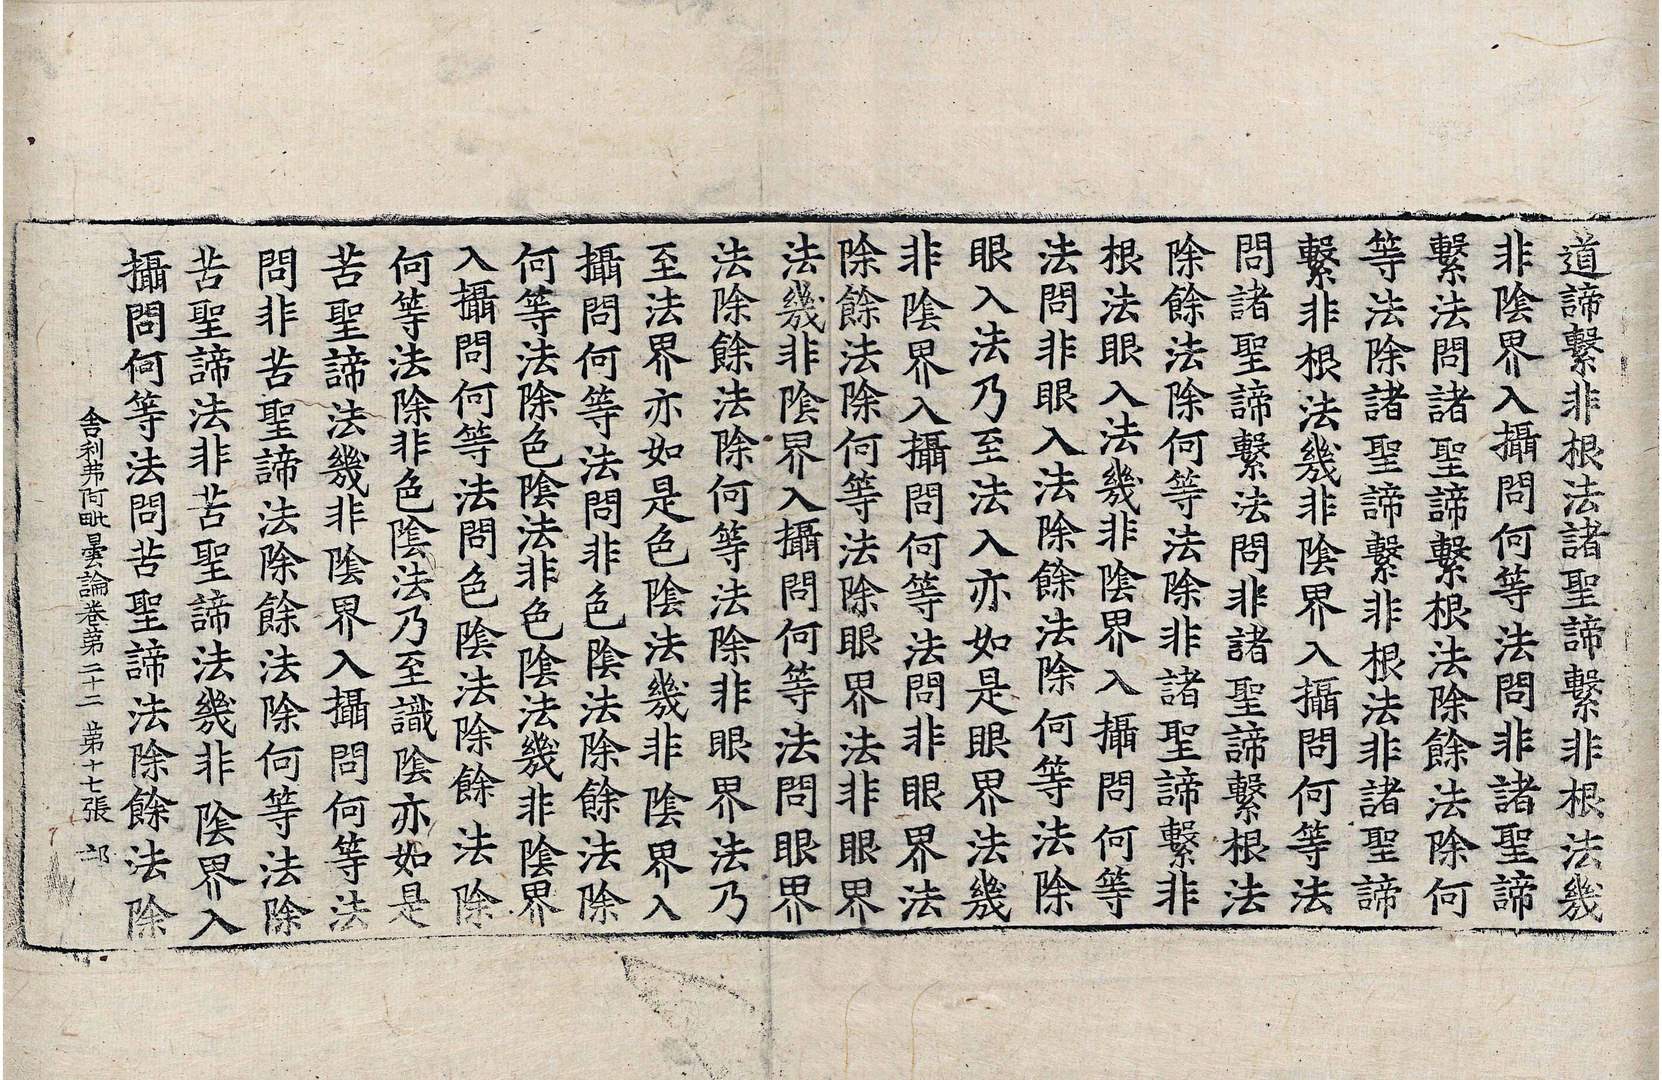 道諦繫非根法諸聖諦繫非根法幾
非陰界入攝問何等法問非諸聖諦
繫法問諸聖諦繫根法除餘法除何
等法除諸聖諦繫非根法非諸聖諦
繫非根法幾非陰界入攝問何等法
問諸聖諦繫法問非諸聖諦繫根法
除餘法除何等法除非諸聖諦繫非
根法眼入法幾非陰界入攝問何等
法問非眼入法除餘法除何等法除
眼入法乃至法入亦如是眼界法幾
非陰界入攝問何等法問非眼界法
除餘法除何等法除眼界法非眼界
法幾非陰界入攝問何等法問眼界
法除餘法除何等法除非眼界法乃
至法界亦如是色陰法幾非陰界入
攝問何等法問非色陰法除餘法除
何等法除色陰法非色陰法幾非陰界
入攝問何等法問色陰法除餘法除
何等法除非色陰法乃至識陰亦如是
苦聖諦法幾非陰界入攝問何等法
問非苦聖諦法除餘法除何等法除
苦聖諦法非苦聖諦法幾非陰界入
攝問何等法問苦聖諦法除餘法除
舍利弗阿毗曇論卷第二十二 第十七張